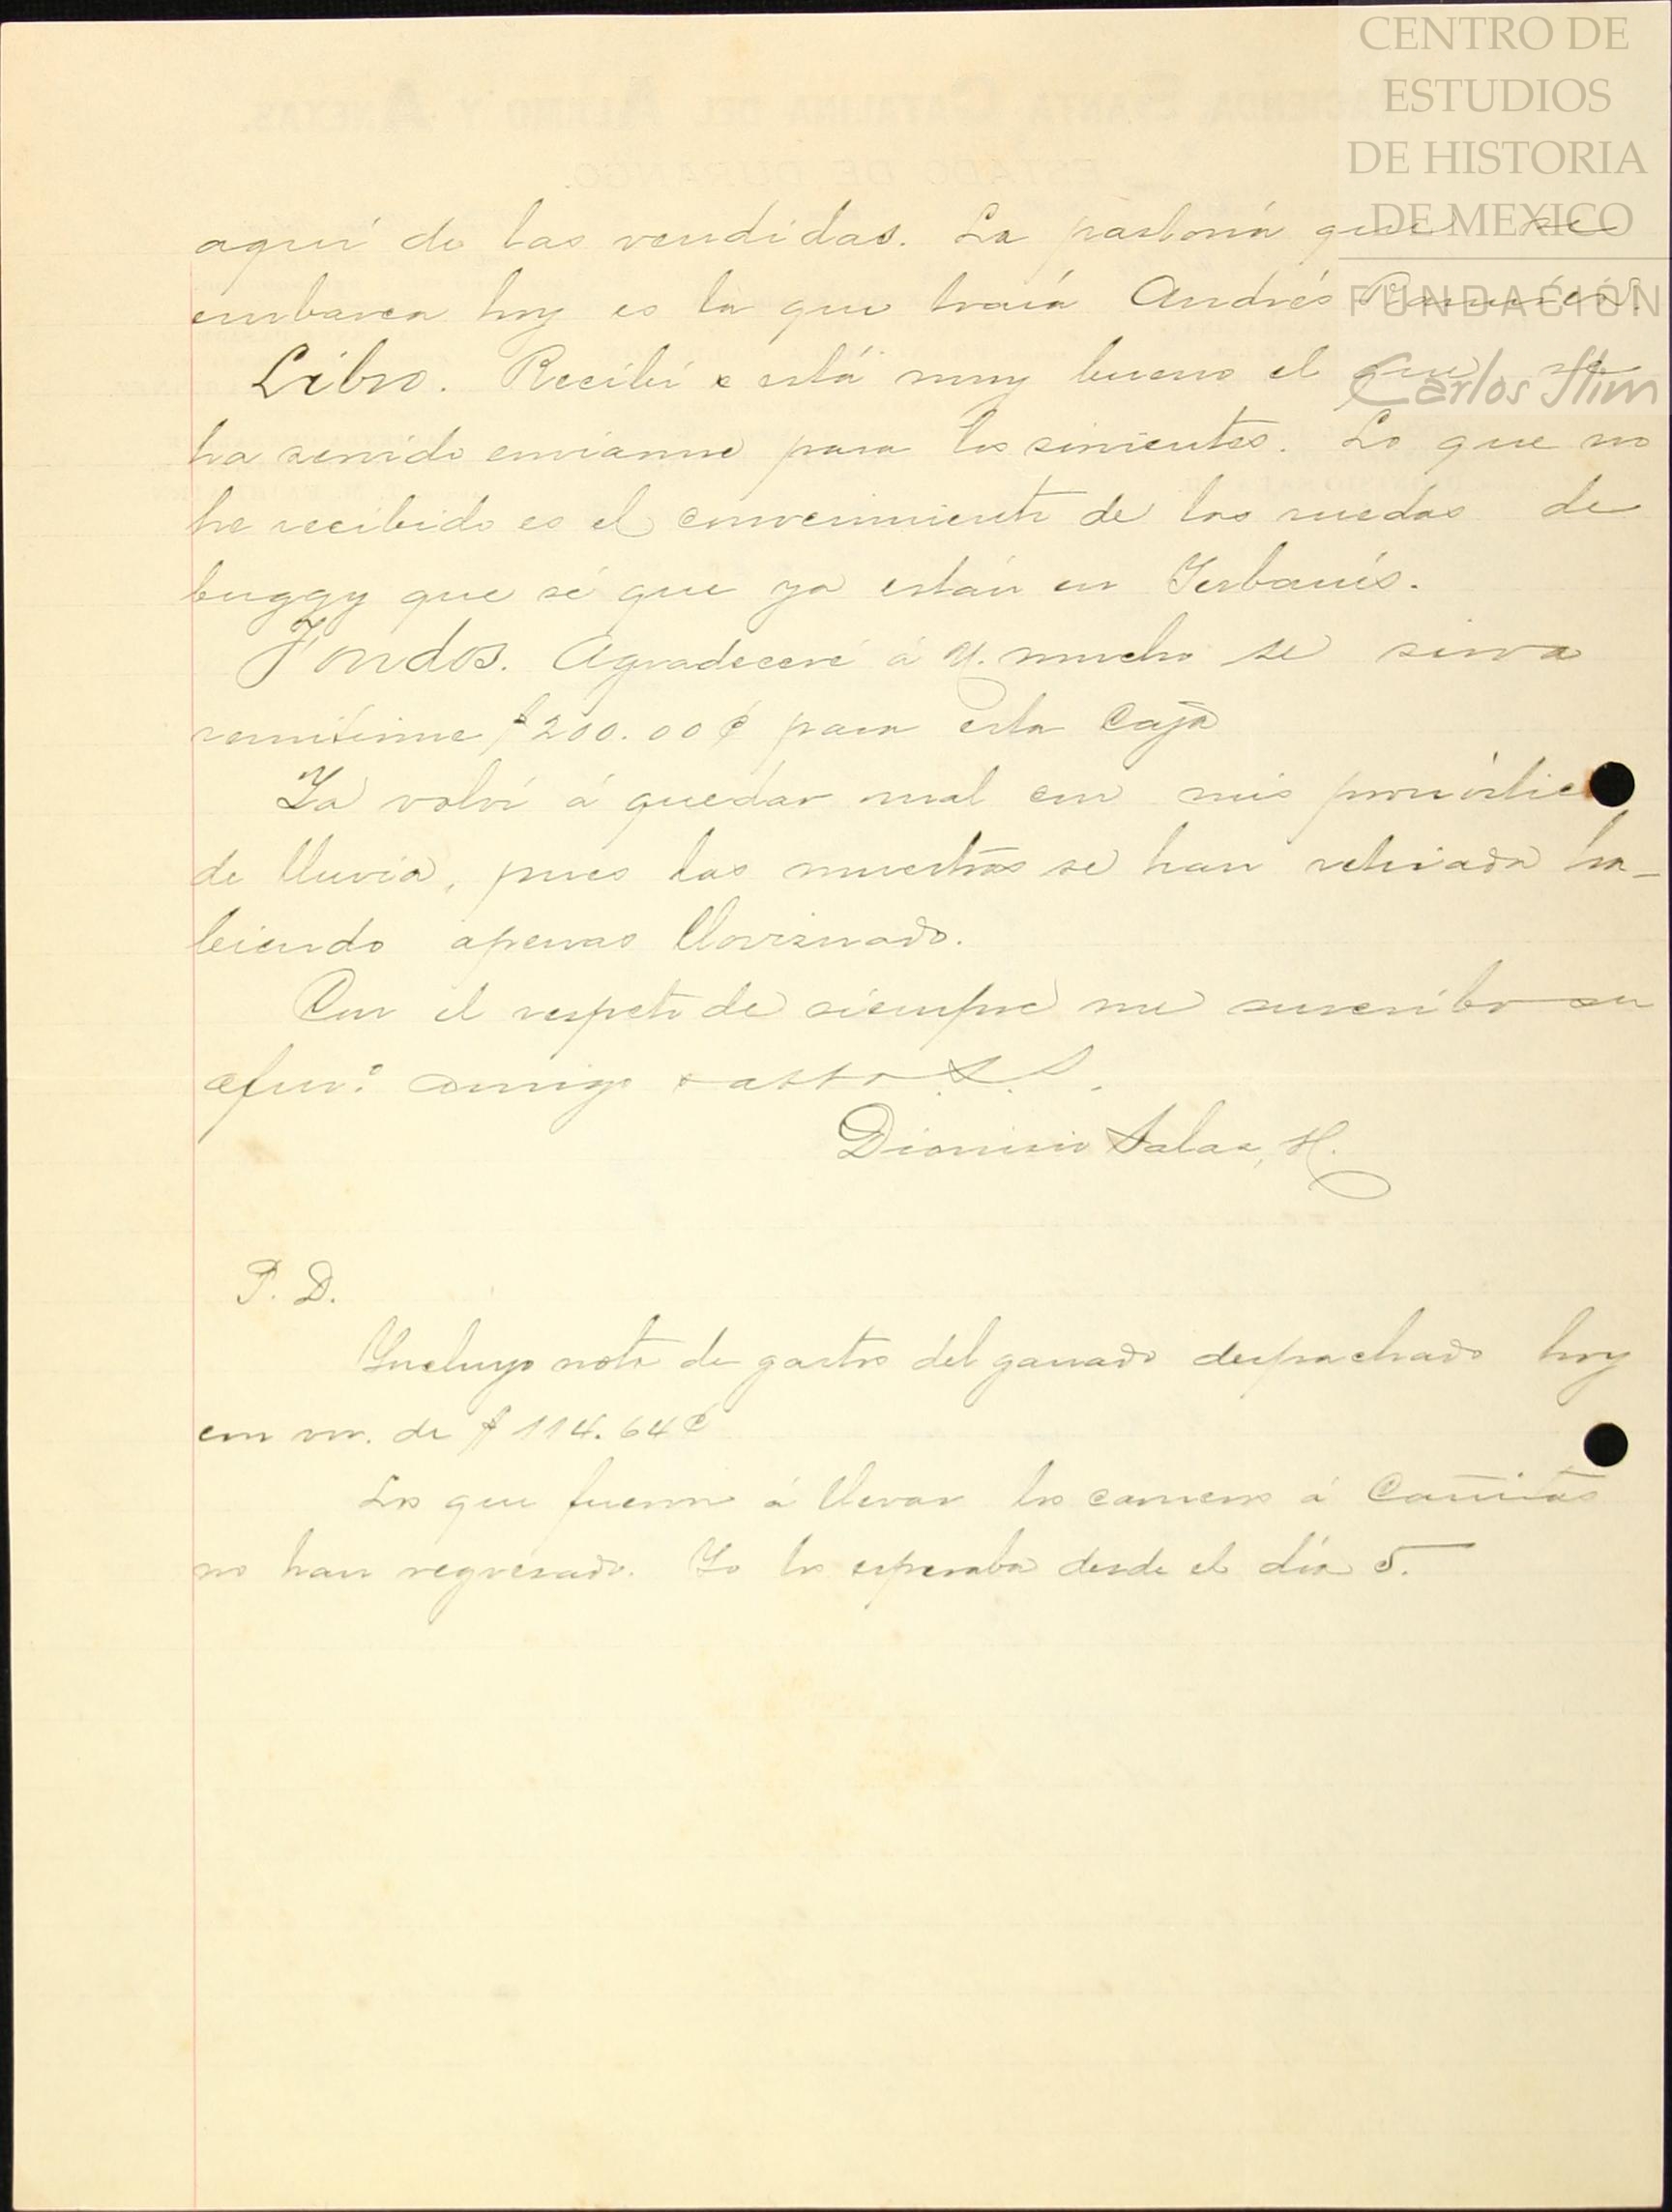 CENTRO DE
ESTUDIOS
DE HISTORIA
DE MEXICO
FUNDACIÓN
Carlos Slim
aquí de las vendidas. La pastoría que se
embarca hoy es la que traía Andrés Ramírez.
Libro. Recibí e está muy bueno el que se
ha servido enviarme para los sirvientes. Lo que no
he recibido es el conocimiento de las ruedas de
buggy que sé que ya están en Yerbanís.
Fondos. Agradeceré á U. mucho se sirva
remitirme $200.00 ¢ para esta Caja
Ya volví á quedar mal con mis
de lluvia, pues las muestras se han retirado ha-
biendo apenas lloviznado.
Con el respeto de siempre me suscribo su
afmo. amigo y atto S. S.
Dionisio Salas, H.
P. D.
Incluyo nota de gastos del ganado despachado hoy
con vr. de $114.64 ¢
Los que fueron á llevar los carneros á Cañitas
no han regresado. Yo los esperaba desde el día 5.